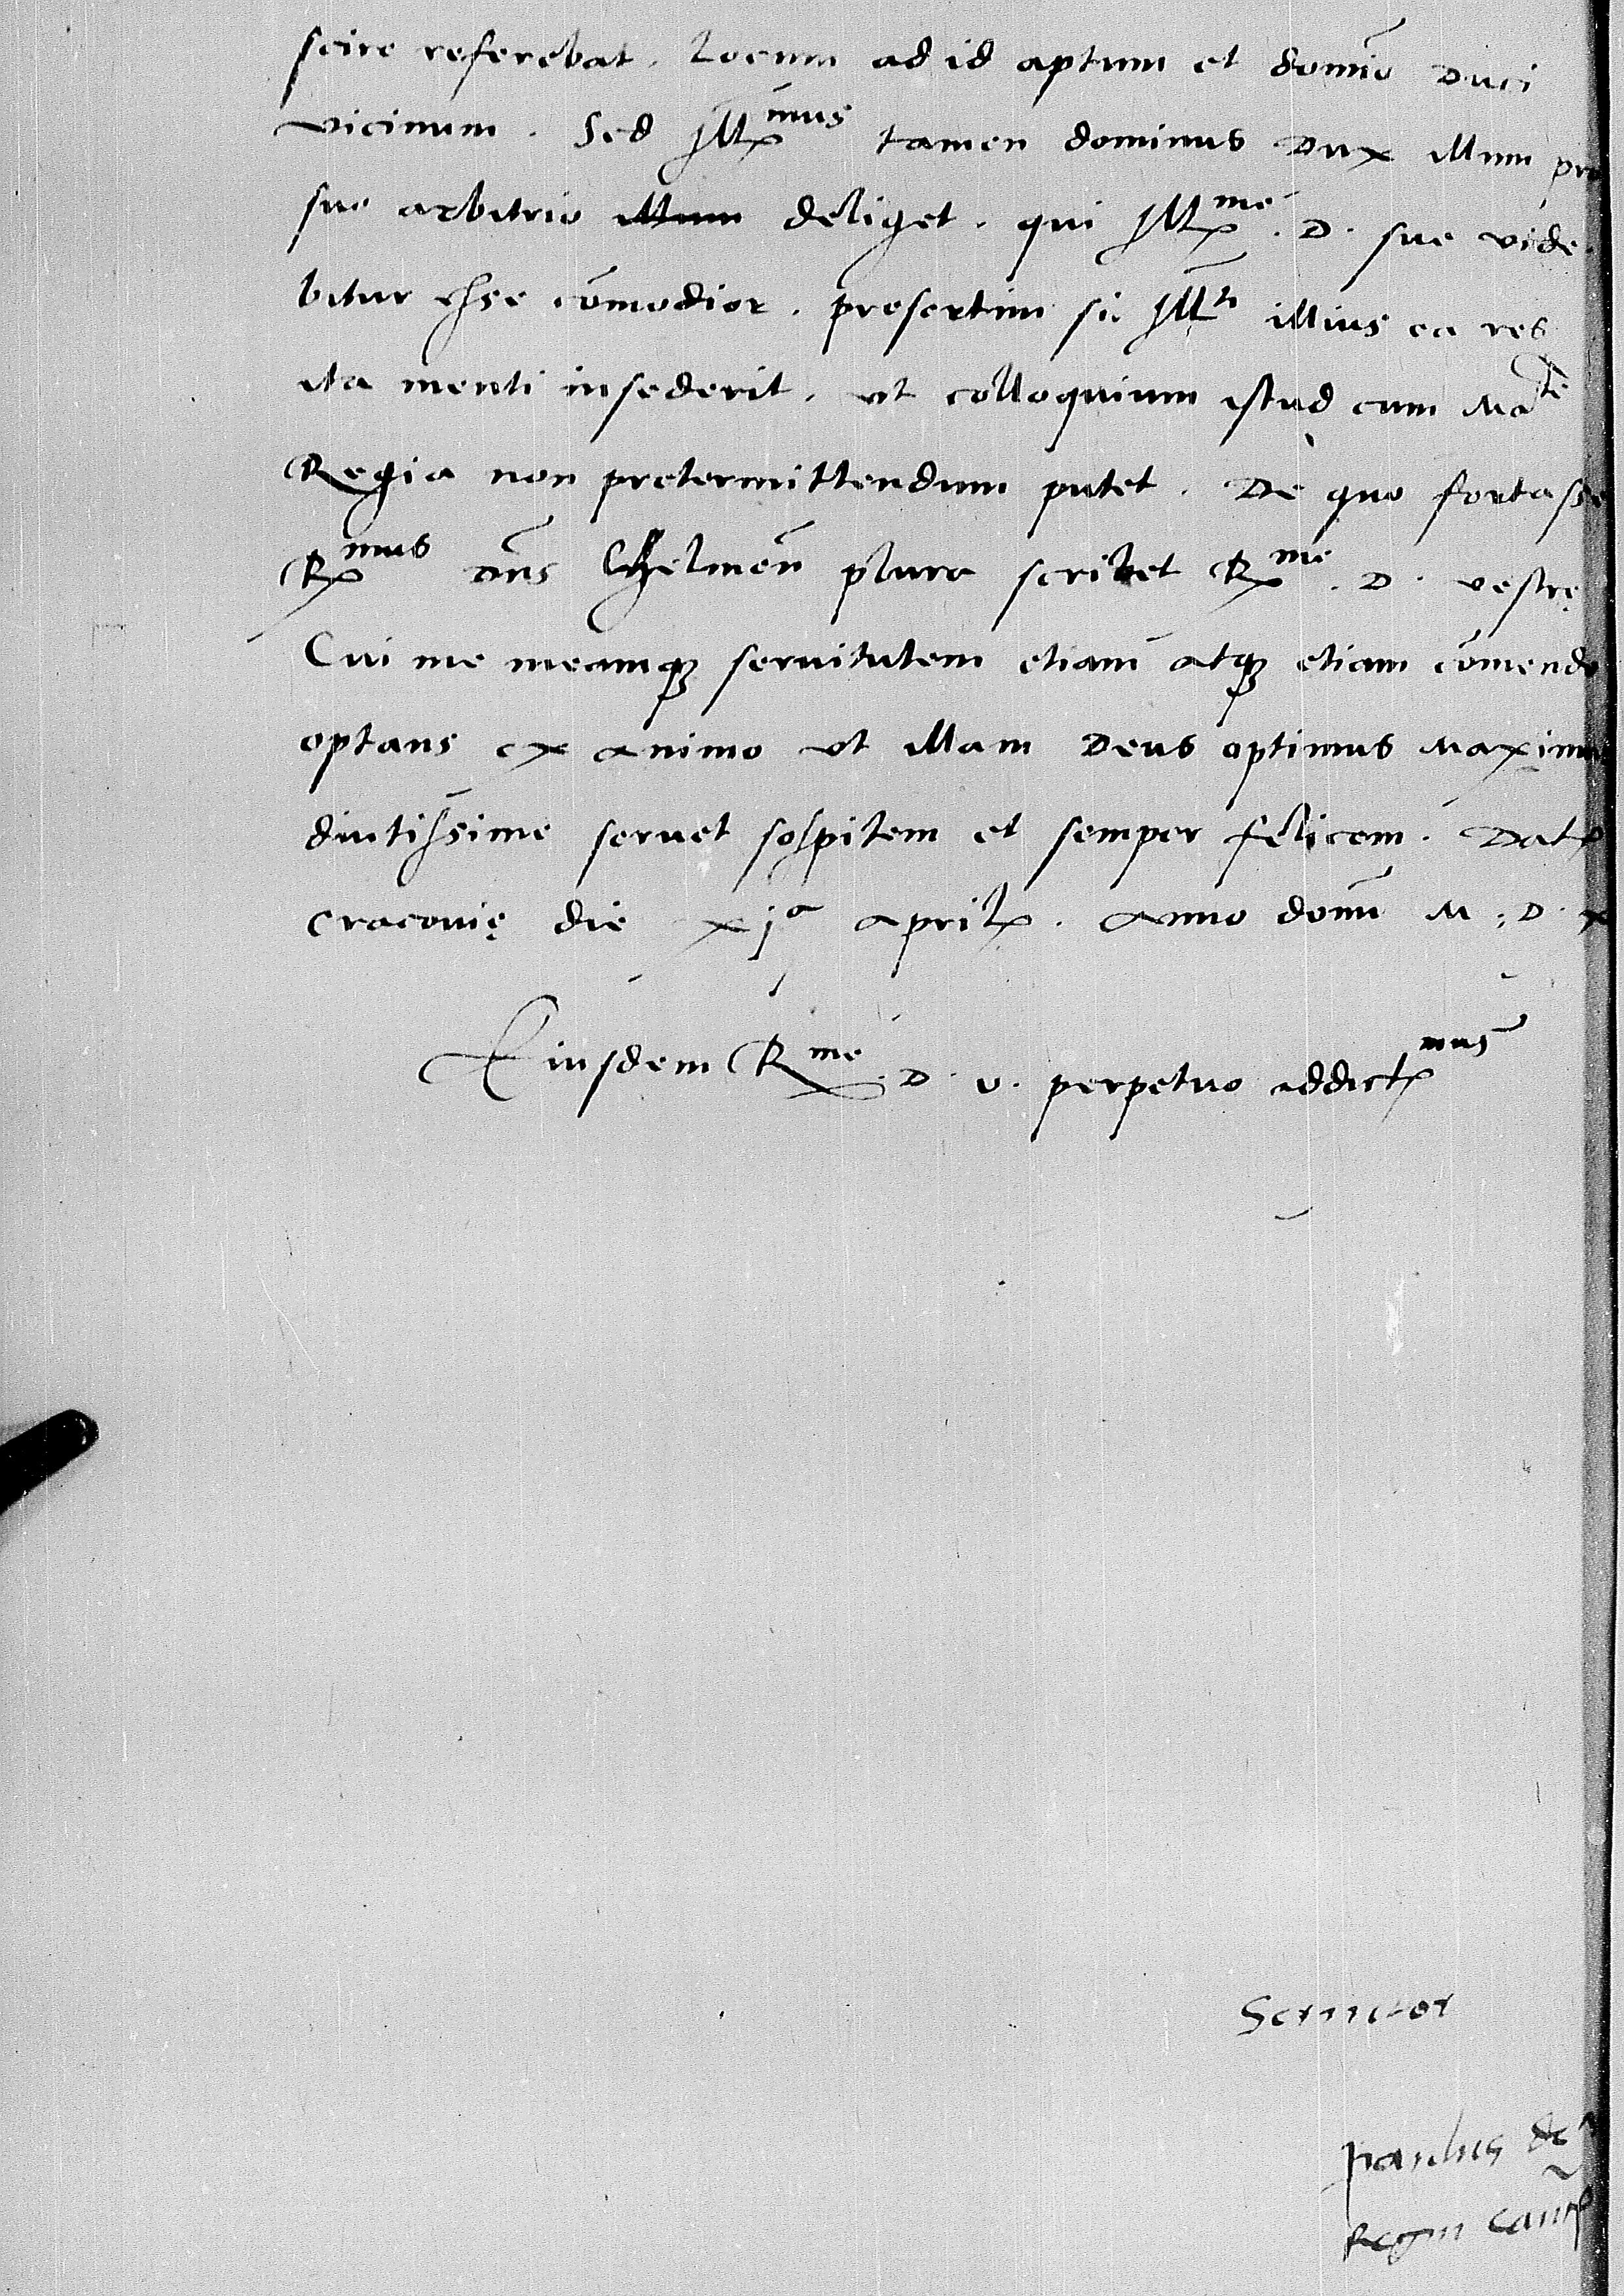 scire referebat. Locum ad id aptum et domīo Duci
vicinum. Sed Illmus tamen dominus Dux illum pro
suo arbitrio illum deliget. qui Illme. D. sue vide
bitur esse cōmodior. presertim si Illti illius ea res
ita menti insederit. ut colloquium istud cum Mate
Regia non pretermittendum putet. De quo fortasse
Rmus dns Chelmeñ plura scribet Rme. D. vestrę
Cui me meamqꝫ seruitutem etiam atqꝫ etiam cōmendo
optans ex animo ut illam Deus optimus Maximus
diutissime seruet sospitem et semper felicem. Dat
Cracovię die xja April. Anno domī M. D. x
Eiusdem Rme. D. v. perpetuo addictmus
Seruitor
Paulus de
Regni Canc